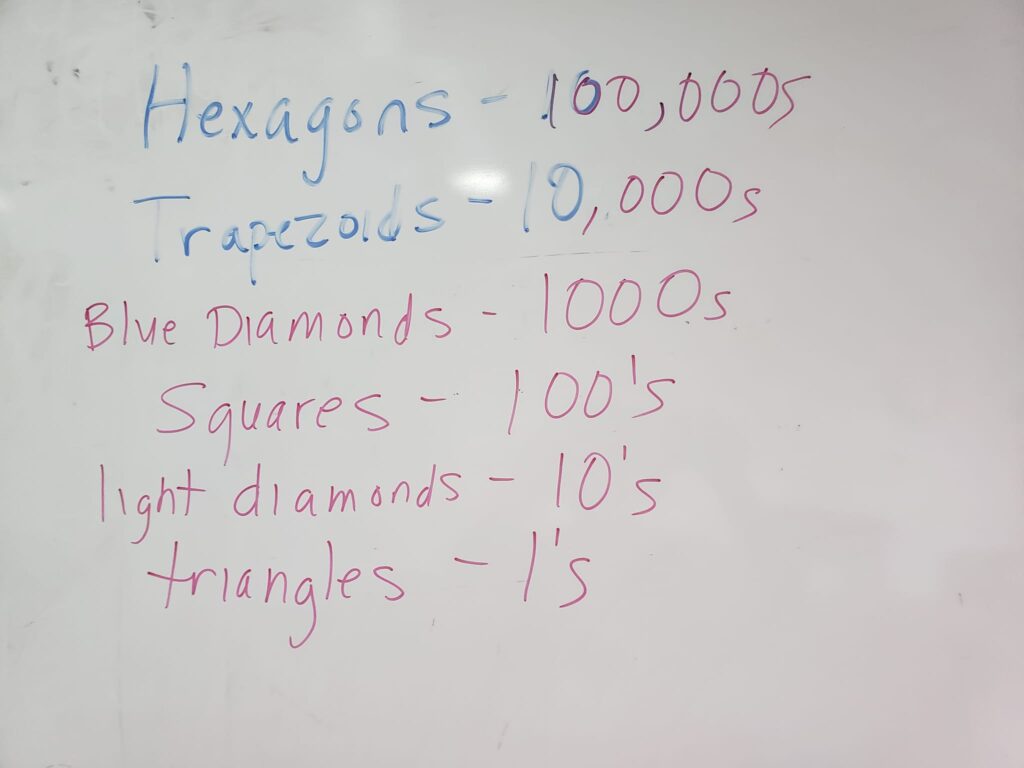 Hexagons - 100,000s
Trapezoids - 10,000s
Blue Diamonds - 1000s
Squares - 100's
light diamonds - 10's
triangles - 1's